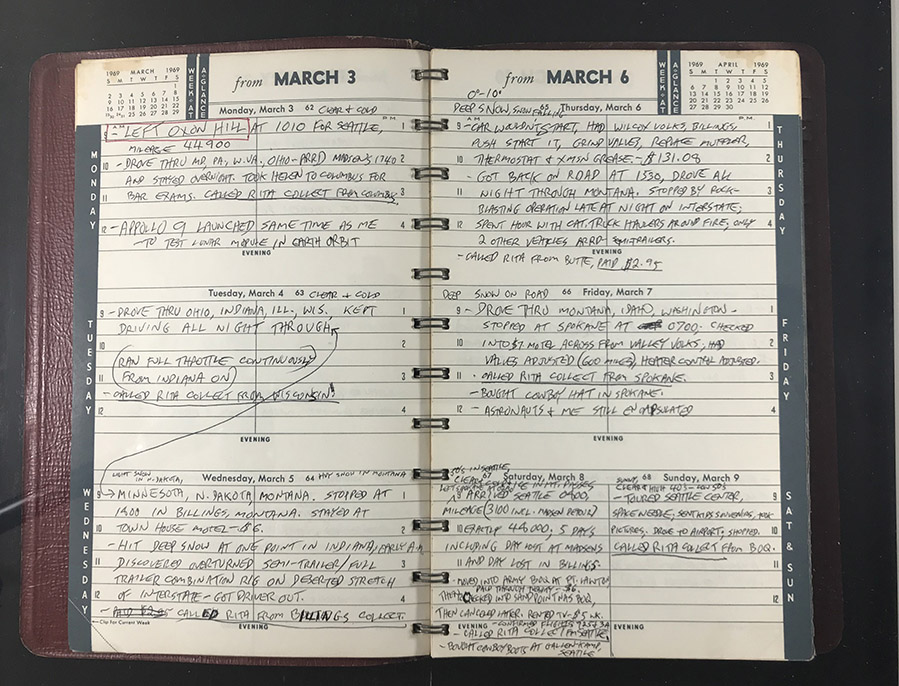 1969 MARCH 1969
S M T W T F S
1
2 3 4 5 6 7 8
9 10 11 12 13 14 15
16 17 18 19 20 21 22
25 26 27 28 29
WEEK-AT
A-GLANCE
from MARCH 3
Monday, March 3 62 CLEAR & COLD
A.M. P.M.
9 - LEFT OXON HILL AT 1010 FOR SEATTLE, 1
MILEAGE 44900
10 - DROVE THRU MD, PA, W.VA, OHIO - ARR'D MADSENS, 1740 2
AND STAYED OVERNIGHT. TOOK HELEN TO COLUMBUS FOR
11 BAR EXAMS. CALLED RITA COLLECT FROM COLUMBUS 3
12 - APPOLLO 9 LAUNCHED SAME TIME AS ME 4
- TO TEST LUNAR MODULE IN EARTH ORBIT
EVENING
MONDAY
Tuesday, March 4 63 CLEAR & COLD
9 - DROVE THRU OHIO, INDIANA, ILL., WIS. KEPT 1
DRIVING ALL NIGHT THROUGH
10 2
(RAN FULL THROTTLE CONTINUOUSLY
11 FROM INDIANA ON) 3
- CALLED RITA COLLECT FROM WISCONSIN!
12 4
EVENING
TUESDAY
LIGHT SNOW IN N. DAKOTA,
Wednesday, March 5 64 HVY SNOW IN MONTANA
9 → MINNESOTA, N. DAKOTA MONTANA. STOPPED AT 1
1800 IN BILLINGS, MONTANA. STAYED AT
10 TOWN HOUSE MOTEL - $6. 2
- HIT DEEP SNOW AT ONE POINT IN INDIANA, EARLY A.M.
11 DISCOVERED OVERTURNED SEMI-TRAILER/FULL 3
TRAILER COMBINATION RIG ON DESERTED STRETCH
12 OF INTERSTATE - GOT DRIVER OUT. 4
- PAID $2.95 CALLED RITA FROM BILLINGS COLLECT.
EVENING
←Clip For Current Week
WEDNESDAY
from MARCH 6
WEEK-AT
A-GLANCE
1969 APRIL 1969
S M T W T F S
1 2 3 4 5
6 7 8 9 10 11 12
13 14 15 16 17 18 19
20 21 22 23 24 25 26
27 28 29 30
0°-10°
DEEP SNOW, SNOW FALLING
65 Thursday, March 6
9 - CAR WOULDN'T START, HAD WILCOX VOLKS, BILLINGS, 1
PUSH START IT, GRIND VALVES, REPLACE MUFFLER,
10 THERMOSTAT & XMSN GREASE - $131.08 2
- GOT BACK ON ROAD AT 1530, DROVE ALL
11 NIGHT THROUGH MONTANA. STOPPED BY ROCK- 3
BLASTING OPERATION LATE AT NIGHT ON INTERSTATE;
12 SPENT HOUR WITH CAT. TRUCK HAULERS AROUND FIRE; ONLY 4
2 OTHER VEHICLES ARR'D - SEMI-TRAILERS.
EVENING
- CALLED RITA FROM BUTTE, PAID $2.95
THURSDAY
DEEP SNOW ON ROAD 66 Friday, March 7
9 - DROVE THRU MONTANA, IDAHO, WASHINGTON - 1
STOPPED AT SPOKANE AT 0700. CHECKED
10 INTO $7 MOTEL ACROSS FROM VALLEY VOLKS, HAD 2
VALVES ADJUSTED (600 MILES), HEATER CONTROL ADJUSTED.
11 - CALLED RITA COLLECT FROM SPOKANE. 3
- BOUGHT COWBOY HAT IN SPOKANE.
12 - ASTRONAUTS & ME STILL ENCAPSULATED 4
EVENING
FRIDAY
50'S IN SEATTLE,
CLEAR
67 Saturday, March 8
9 ARRIVED SEATTLE
MILEAGE (3100 INCL. MADSEN DETOUR)
10 EXACTLY 48,000, 5 DAYS
INCLUDING DAY LOST AT MADSENS
11 AND DAY LOST IN BILLINGS.
- MOVED INTO ARMY BOQ AT FT. LAWTON
CHECKED INTO SAND POINT NAS BOQ,
THEN CANCELED LATER. RENTED TV - $5 WK.
EVENING - CONFIRMED FLIGHTS
- CALLED RITA COLLECT FM SEATTLE
- BOUGHT COWBOY BOOTS AT GALLENKAMP, SEATTLE
SUNNY, 68 Sunday, March 9
CLEAR & HIGH 40'S - LOW 50'S
- TOURED SEATTLE CENTER, 9
SPACE NEEDLE, SENT KIDS SOUVENIRS, TOOK
PICTURES. DROVE TO AIRPORT; SHOPPED. 10
CALLED RITA COLLECT FROM BOQ.
11
12
EVENING
SAT & SUN